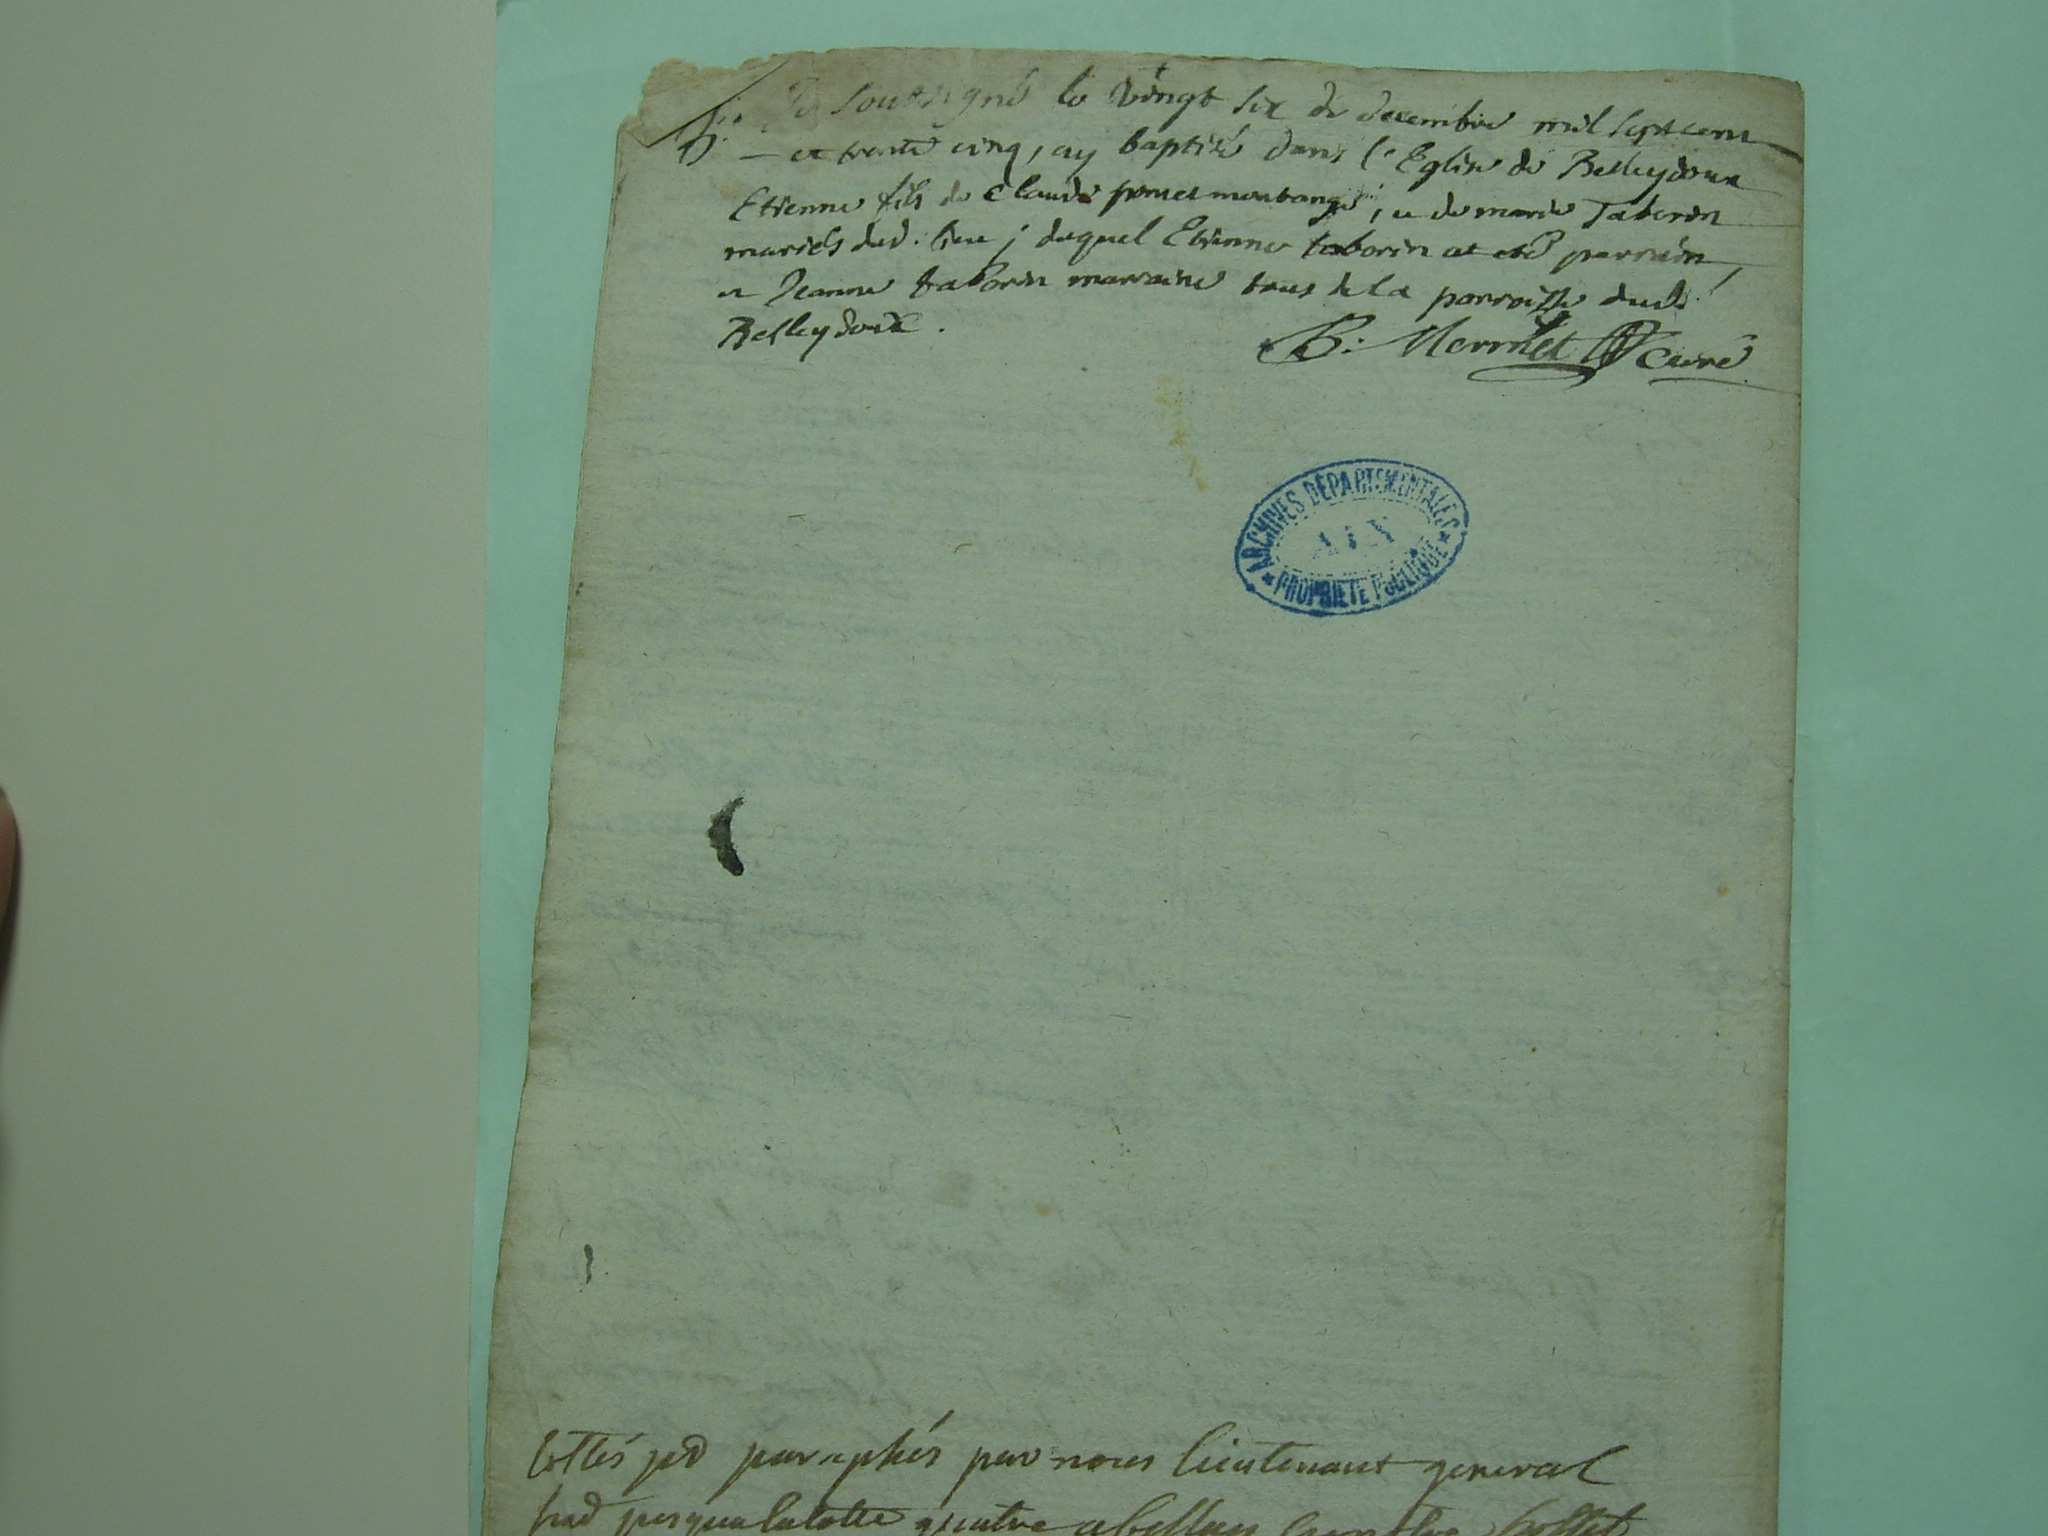 B. Je soussigné le vingt six de decembre mil sept cent
et trente cinq, ay baptisé dans l'Eglise de Belleydoux
Etienne fils de Claude poncet montange, et de marie Taborin
mariés dud. lieu; duquel Etienne taborin at eté parrain,
et Jeanne taborin marraine tous de la parroisse dud.
Belleydoux.
B. Mermet Curé
ARCHIVES DÉPARTEMENTALES
AIN
PROPRIÉTÉ PUBLIQUE
Cottés par paraphés par nous lieutenant general
jusqua la cotte quatre abellay